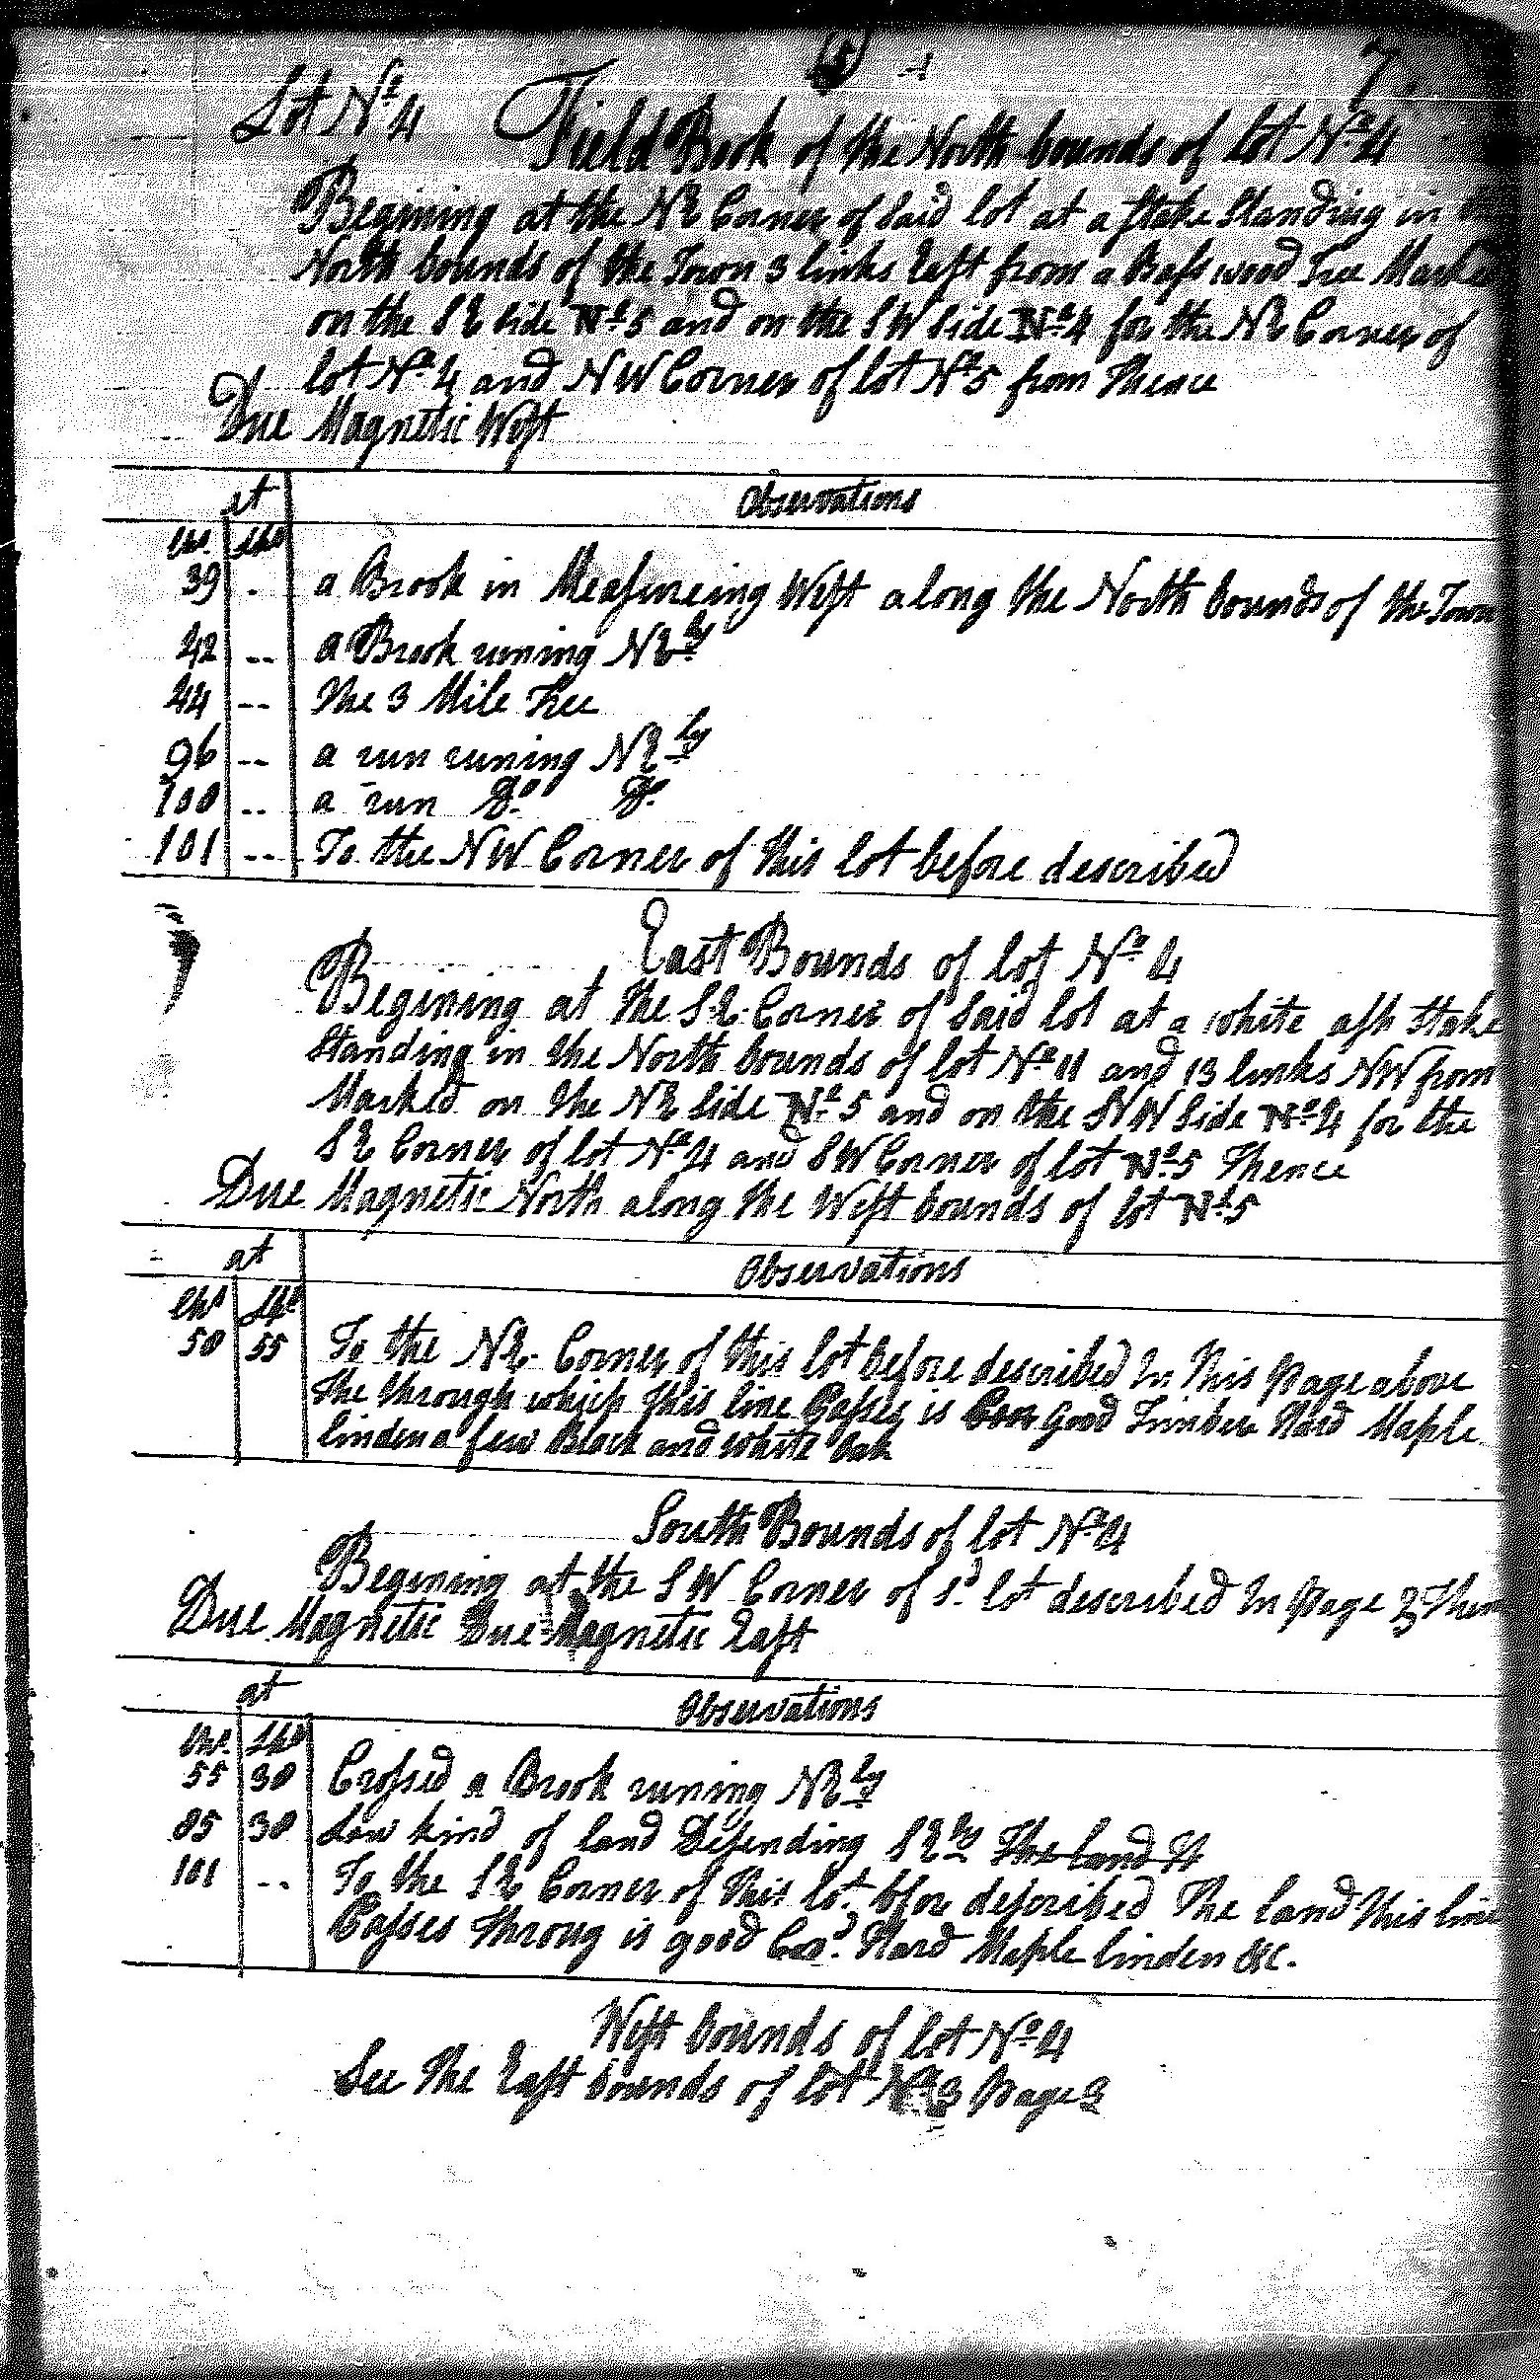 7
Lot No 4 Field Book of the North bounds of lot No 4
Begining at the NE Corner of Said lot at a Stake Standing in
North bounds of the Town 3 links East from a Bass wood Tree Marked
on the SE side No 5 and on the SW Side No 4 for the NE Corner of
lot No 4 and NW Corner of lot No 5 from Thence
Due Magnetic West
at Observations
Chs Lks
39 . a Brook in Measureing West along the North bounds of the Town
42 -- a Brook runing NEly
44 -- The 3 Mile Tree
96 -- a run runing NEly
100 -- a run Do Do
101 -- To the NW Corner of this lot before described
East Bounds of lot No 4
Begining at the SE Corner of Said lot at a white ash Stake
Standing in the North bounds of lot No 11 and 13 links NW from
Marked on the NE Side No 5 and on the NW Side No 4 for the
SE Corner of lot No 4 and SW Corner of lot No 5 Thence
Due Magnetic North along the West bounds of lot No 5
at Observations
Chs Lks
50 55 To the NE Corner of this lot before described In This page above
The through which this line Passes is Good Timber Hard Maple
linden a few Black and white Oak
South Bounds of lot No 4
Begining at the SW Corner of sd lot described In page 3
Due Magnetic Due Magnetic East
at Observations
Chs Lks
55 30 Crossed a Brook runing NEly
85 30 Low kind of land Desending SEly The land It
101 -- To the SE Corner of this lot before described The land this line
Passes Throug is good Hard Maple linden &c.
West bounds of lot No 4
See The East bounds of lot No 3 page